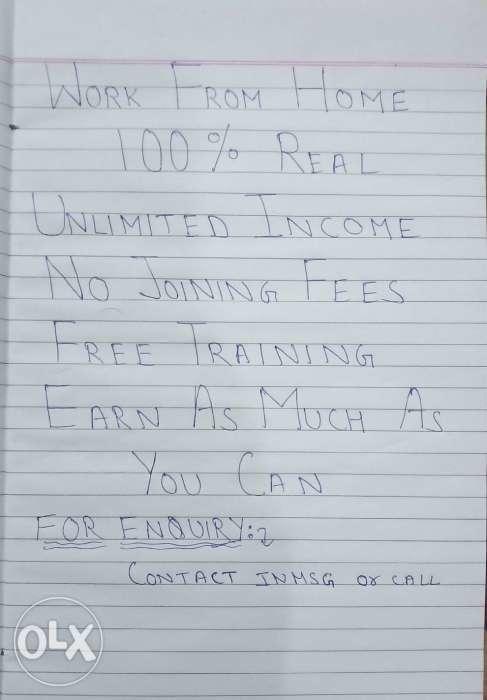 WORK FROM HOME
100% REAL
UNLIMITED INCOME
NO JOINING FEES
FREE TRAINING
EARN AS MUCH AS
YOU CAN
FOR ENQUIRY:-
CONTACT INMSG or CALL
OLX